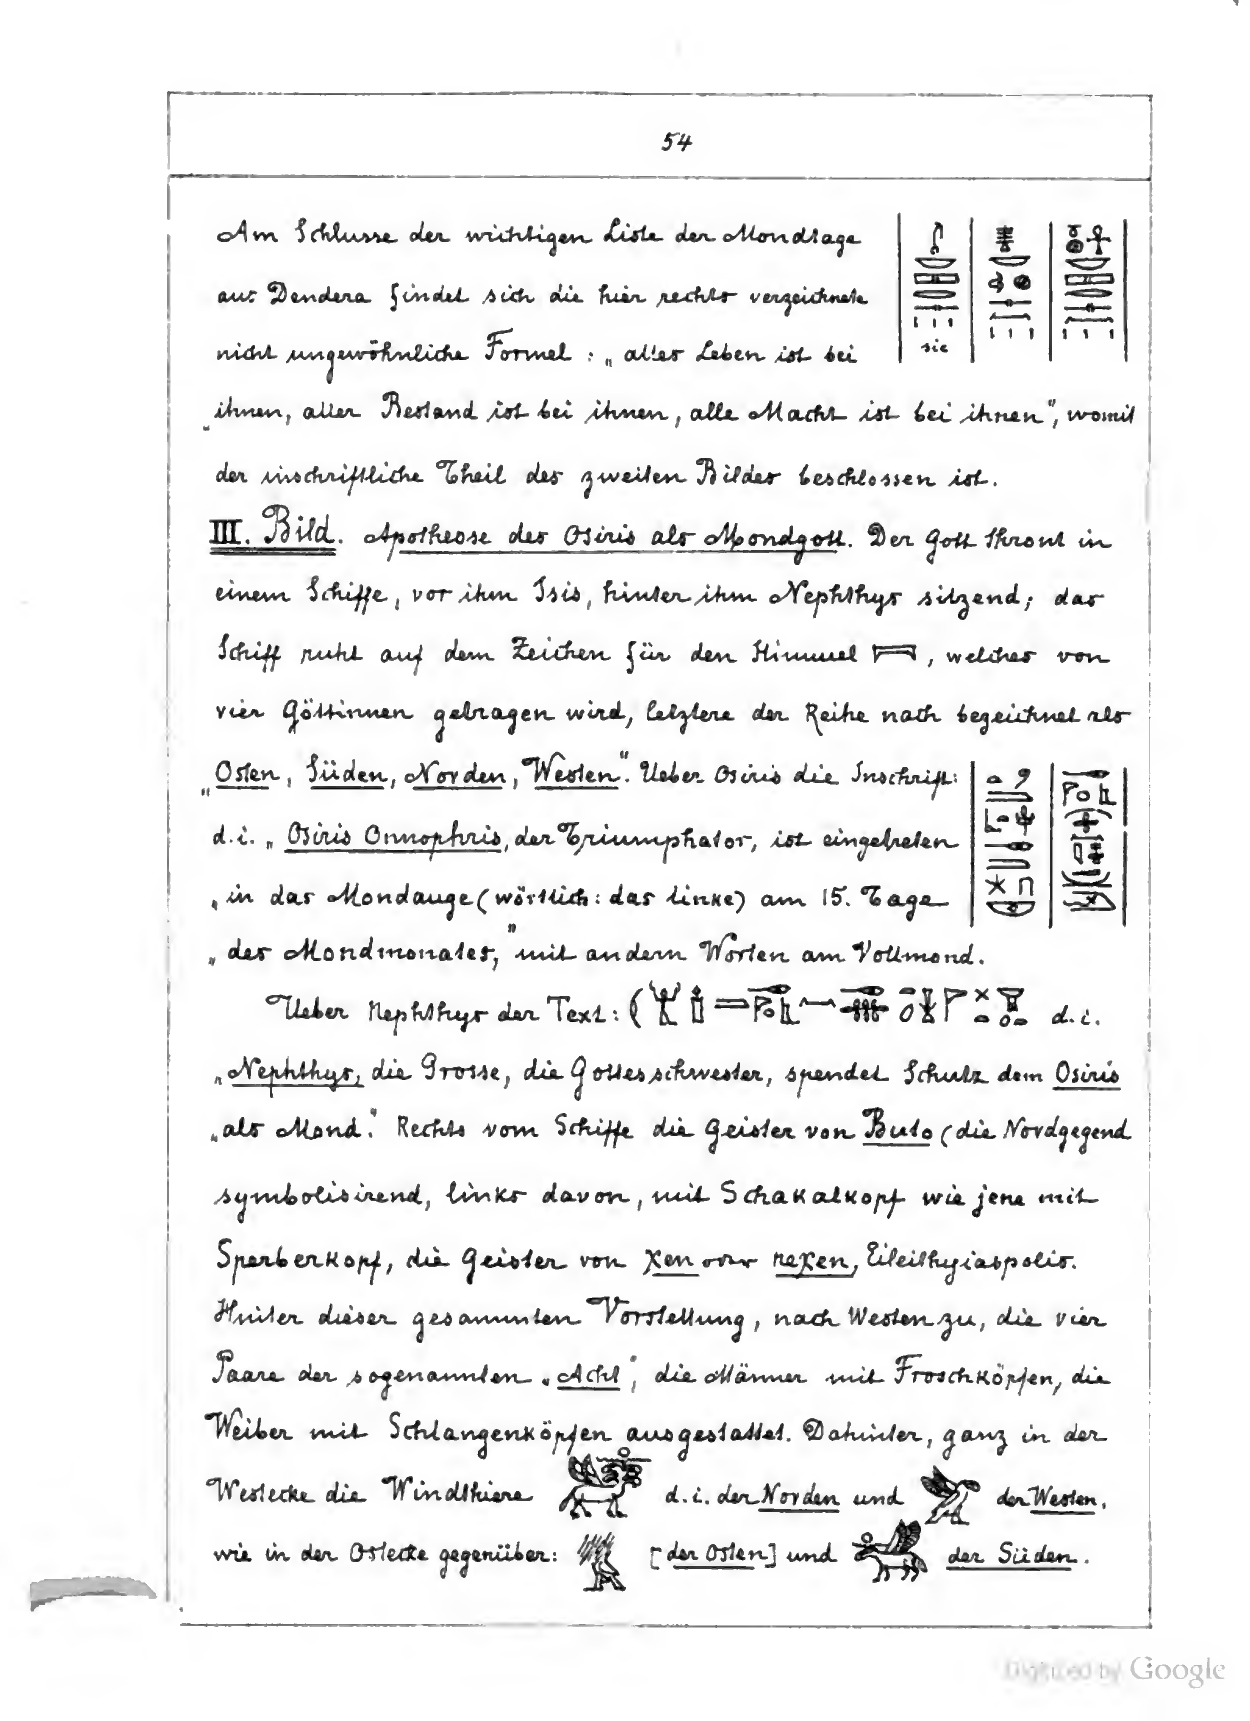 54
Am Schlusse der wichtigen Liste der Mondtage
aus Dendera findet sich die hier rechts verzeichnete
nicht ungewöhnliche Formel: „alles Leben ist bei
sic
„ihnen, aller Bestand ist bei ihnen, alle Macht ist bei ihnen", womit
der inschriftliche Theil des zweiten Bildes beschlossen ist.
III. Bild. Apotheose des Osiris als Mondgott. Der Gott thront in
einem Schiffe, vor ihm Isis, hinter ihm Nephthys sitzend; das
Schiff ruht auf dem Zeichen für den Himmel, welches von
vier Göttinnen getragen wird, letztere der Reihe nach bezeichnet als
„Osten, Süden, Norden, Westen". Ueber Osiris die Inschrift:
d.i. „Osiris Onnophris, der Triumphator, ist eingetreten
„in das Mondauge (wörtlich: das linke) am 15. Tage
„des Mondmonates," mit andern Worten am Vollmond.
Ueber Nephthys der Text: ( d.i.
„Nephthys, die Grosse, die Gottesschwester, spendet Schutz dem Osiris
„als Mond". Rechts vom Schiffe die Geister von Buto (die Nordgegend
symbolisirend, links davon, mit Schakalkopf wie jene mit
Sperberkopf, die Geister von χen oder neχen, Eileithyiaspolis.
Hinter dieser gesammten Vorstellung, nach Westen zu, die vier
Paare der sogenannten „Acht", die Männer mit Froschköpfen, die
Weiber mit Schlangenköpfen ausgestattet. Dahinter, ganz in der
Westecke die Windthiere d.i. der Norden und der Westen,
wie in der Ostecke gegenüber: [der Osten] und der Süden.
Digitized by Google